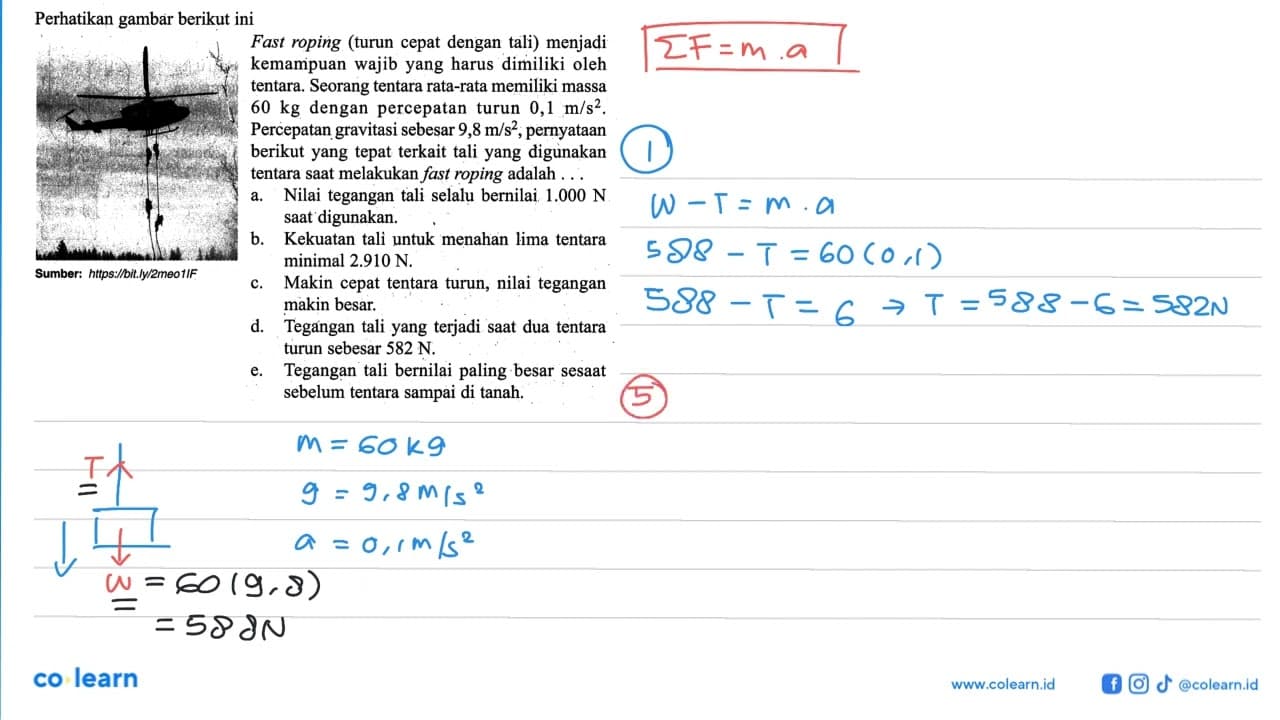 Perhatikan gambar berikut ini
Fast roping (turun cepat dengan tali) menjadi
kemampuan wajib yang harus dimiliki oleh
tentara. Seorang tentara rata-rata memiliki massa
60 kg dengan percepatan turun 0,1 m/s².
Percepatan gravitasi sebesar 9,8 m/s², pernyataan
berikut yang tepat terkait tali yang digunakan
tentara saat melakukan fast roping adalah . . .
a. Nilai tegangan tali selalu bernilai 1.000 N
saat digunakan.
b. Kekuatan tali untuk menahan lima tentara
minimal 2.910 N.
c. Makin cepat tentara turun, nilai tegangan
makin besar.
d. Tegangan tali yang terjadi saat dua tentara
turun sebesar 582 N.
e. Tegangan tali bernilai paling besar sesaat
sebelum tentara sampai di tanah.
Sumber: https://bit.ly/2meo1IF
ΣF = m . a
1
W - T = m . a
588 - T = 60 (0,1)
588 - T = 6 → T = 588 - 6 = 582N
5
m = 60 kg
g = 9,8 m/s²
a = 0,1 m/s²
T
W = 60 (9,8)
= 588N
co learn
www.colearn.id
@colearn.id